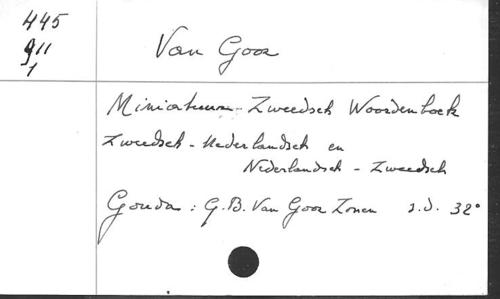 445
911
1
Van Goor
Miniatuur-Zweedsch Woordenboek
Zweedsch-Nederlandsch en
Nederlandsch - Zweedsch
Gouda: G.B. Van Goor Zonen s.d. 32°